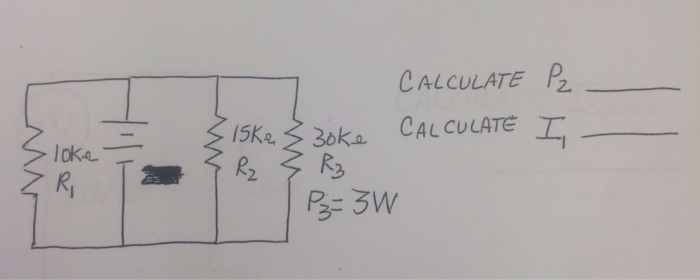 CALCULATE P2
CALCULATE I1
10KΩ
R1
15KΩ
R2
30KΩ
R3
P3=3W